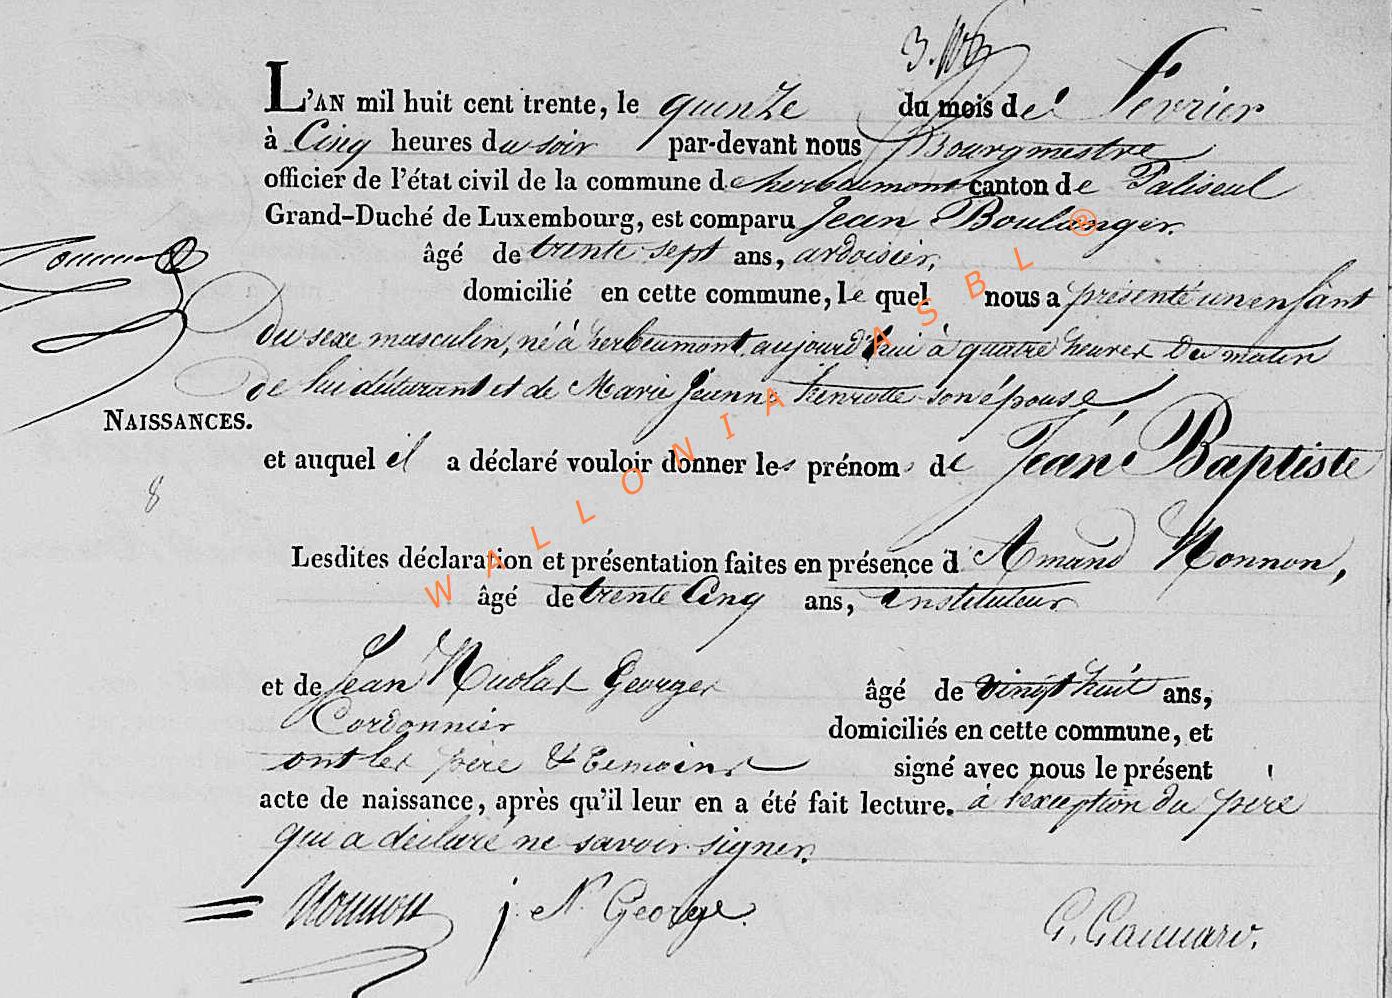 L'AN mil huit cent trente, le quinze du mois de fevrier
à Cinq heures du soir par-devant nous Bourgmestre
officier de l'état civil de la commune de herbeumont canton de Paliseul
Grand-Duché de Luxembourg, est comparu Jean Boulanger.
âgé de trente sept ans, ardoisier,
domicilié en cette commune, le quel nous a présenté un enfant
Du sexe masculin, né à herbeumont, aujourd'hui à quatre heures Du matin
De lui déclarant et de Marie Jeanne henrotte son épouse
NAISSANCES.
et auquel il a déclaré vouloir donner les prénoms de Jean Baptiste
8
Lesdites déclaration et présentation faites en présence d'Amand Nonnon,
âgé de trente Cinq ans, instituteur
et de Jean Nicolas Georges âgé de vingt huit ans,
Cordonnier domiciliés en cette commune, et
ont les père & temoins signé avec nous le présent
acte de naissance, après qu'il leur en a été fait lecture. à l'exception du père
qui a déclaré ne savoir signer.
Nonnon j. N. George.
WALLONIA ASBL ®